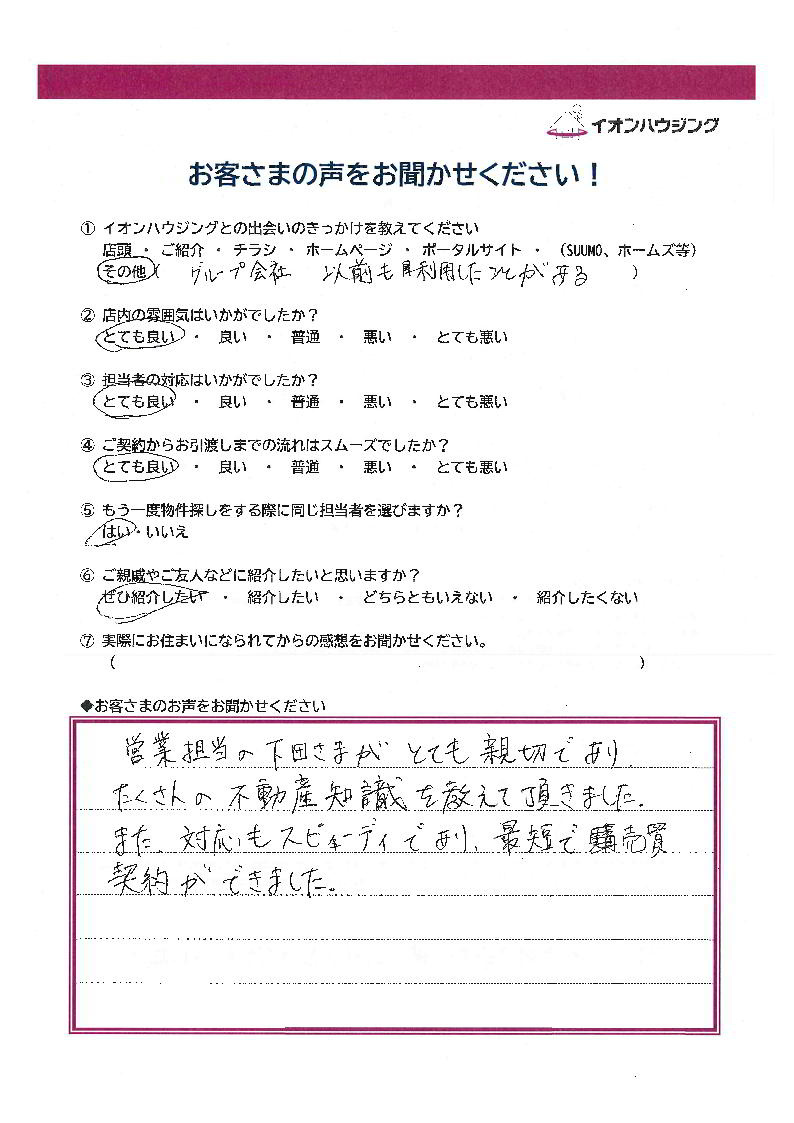 イオンハウジング
お客さまの声をお聞かせください！
① イオンハウジングとの出会いのきっかけを教えてください
店頭 ・ ご紹介 ・ チラシ ・ ホームページ ・ ポータルサイト ・ （SUUMO、ホームズ等）
その他（ グループ会社 以前も利用したことがある ）
② 店内の雰囲気はいかがでしたか？
とても良い ・ 良い ・ 普通 ・ 悪い ・ とても悪い
③ 担当者の対応はいかがでしたか？
とても良い ・ 良い ・ 普通 ・ 悪い ・ とても悪い
④ ご契約からお引渡しまでの流れはスムーズでしたか？
とても良い ・ 良い ・ 普通 ・ 悪い ・ とても悪い
⑤ もう一度物件探しをする際に同じ担当者を選びますか？
はい・いいえ
⑥ ご親戚やご友人などに紹介したいと思いますか？
ぜひ紹介したい ・ 紹介したい ・ どちらともいえない ・ 紹介したくない
⑦ 実際にお住まいになられてからの感想をお聞かせください。
（ ）
◆お客さまのお声をお聞かせください
営業担当の下田さまがとても親切であり、
たくさんの不動産知識を教えて頂きました。
また、対応もスピーディであり、最短で売買
契約ができました。